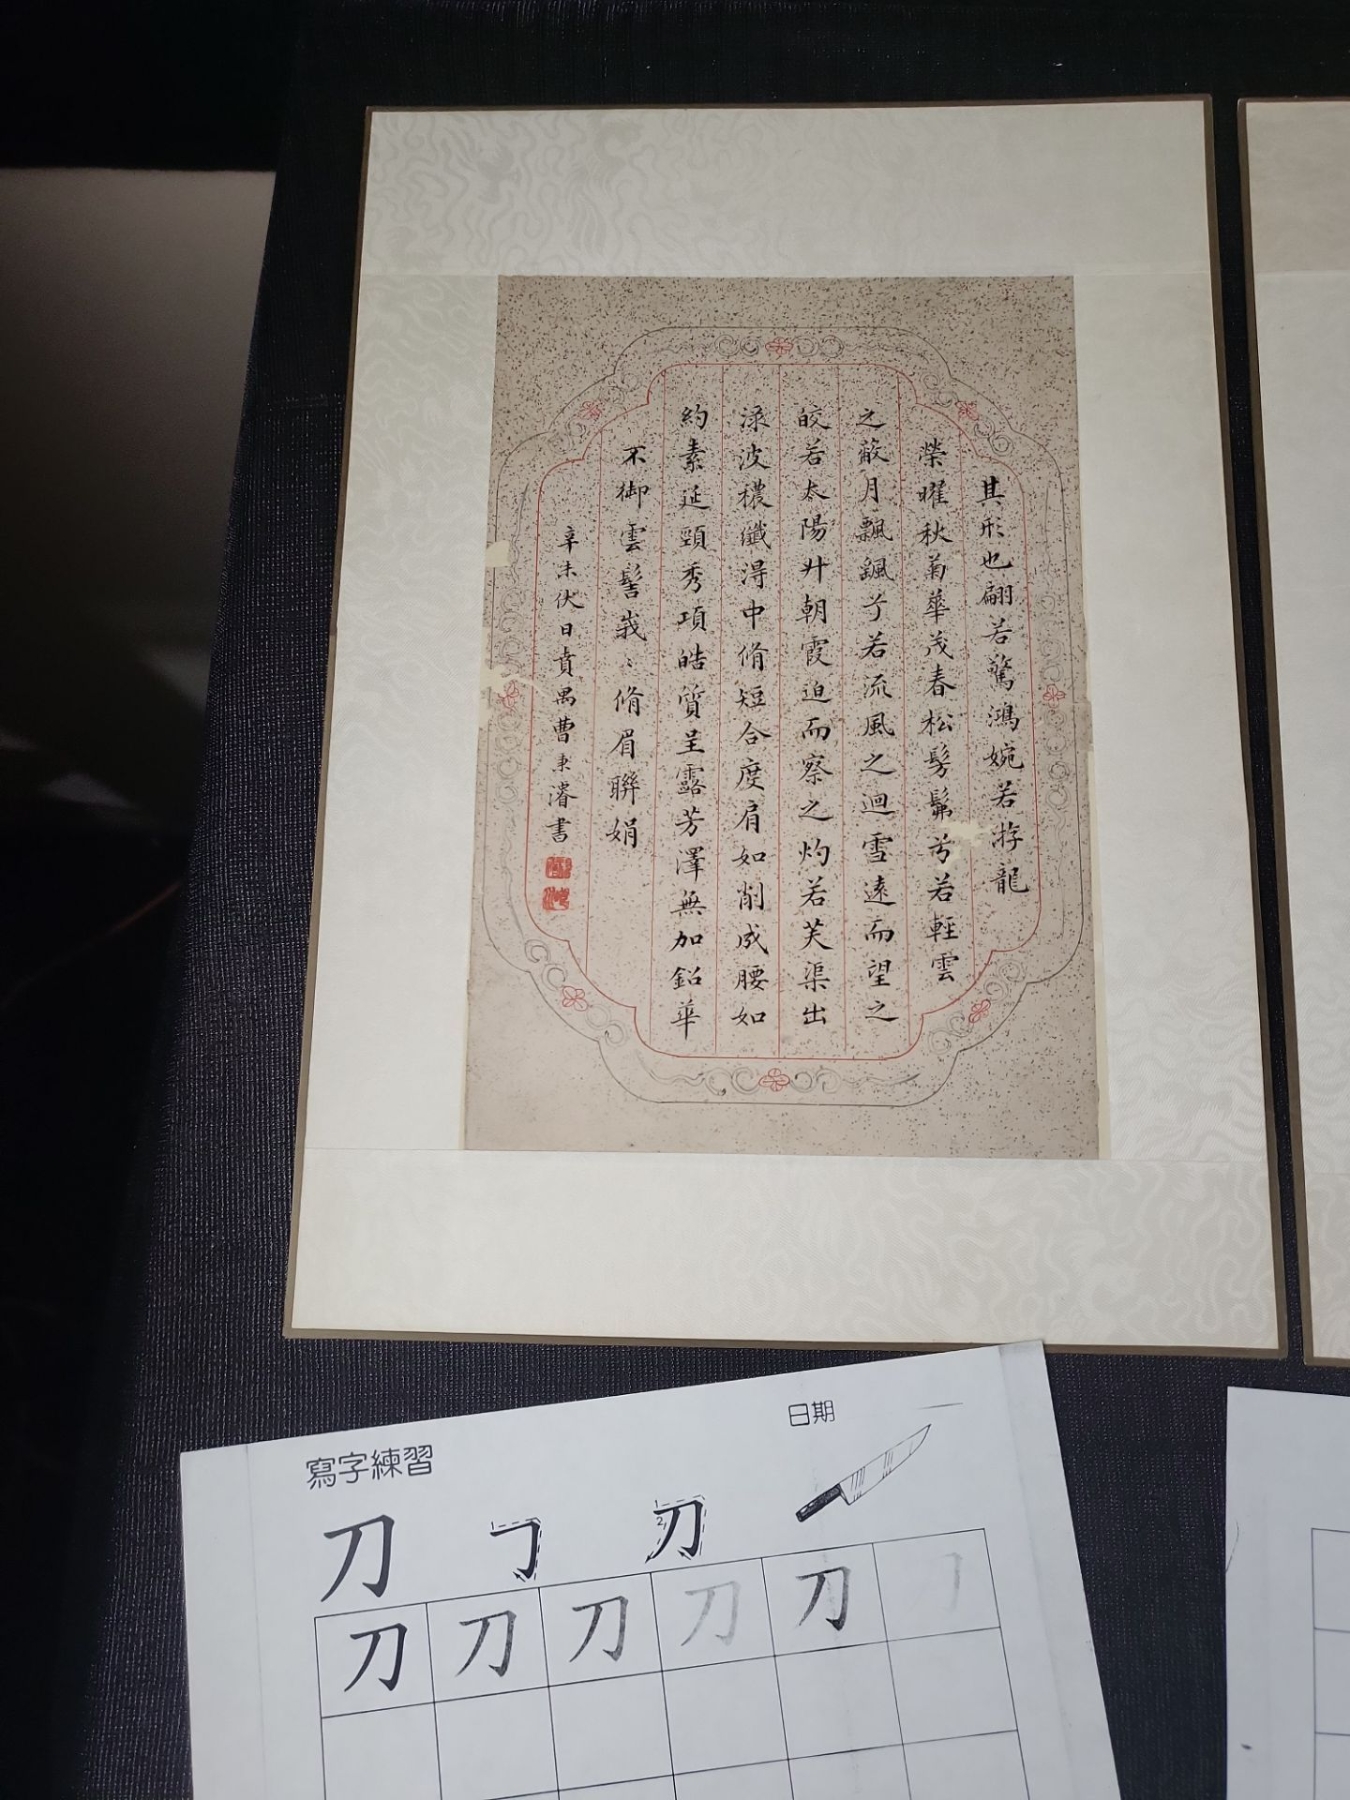 其形也翩若驚鴻婉若游龍
榮曜秋菊華茂春松髣髴兮若輕雲
之蔽月飄颻兮若流風之迴雪遠而望之
皎若太陽升朝霞迫而察之灼若芙渠出
淥波穠纖淂中脩短合度肩如削成腰如
約素延頸秀項皓質呈露芳澤無加鉛華
不御雲髻峩〻脩眉聯娟
辛未伏日貢禺曹秉濬書
寫字練習
日期
刀 刀
刀 刀 刀 刀 刀